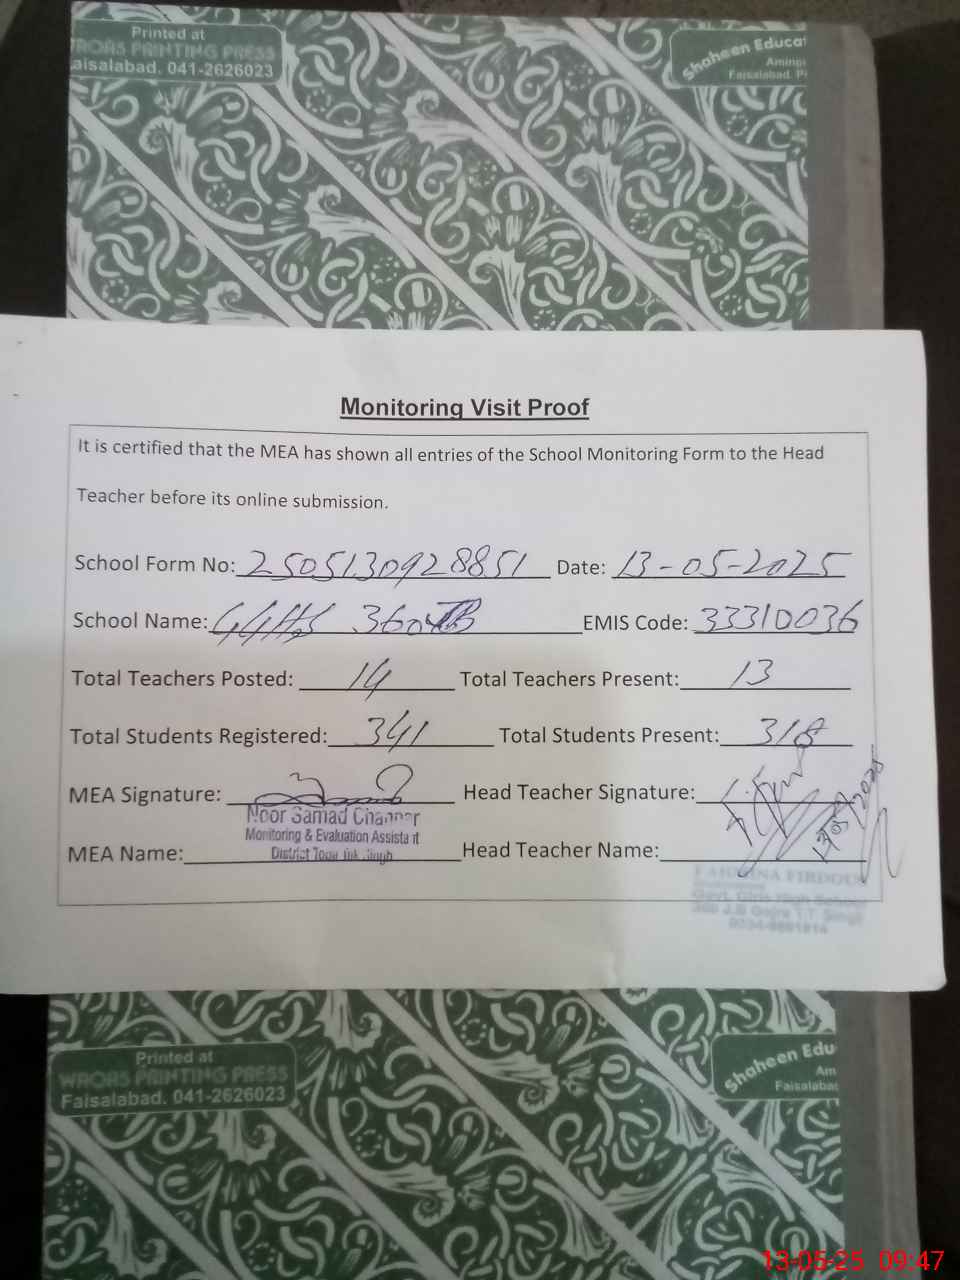 Printed at
WRORS PRINTING PRESS
aisalabad. 041-2626023
Shaheen Educat
Aminpu
Faisalabad. P
Monitoring Visit Proof
It is certified that the MEA has shown all entries of the School Monitoring Form to the Head
Teacher before its online submission.
School Form No: 2505130928851 Date: 13-05-2025
School Name: GGHS 360 JB EMIS Code: 33310036
Total Teachers Posted: 14 Total Teachers Present: 13
Total Students Registered: 341 Total Students Present: 318
MEA Signature: Head Teacher Signature:
13/05/2025
Noor Samad Channar
Monitoring & Evaluation Assistant
MEA Name: District Toba Tek Singh Head Teacher Name:
FIRDOUS
Govt. Girls High School
360 J.B Gojra T.T. Singh
Printed at
WRORS PRINTING PRESS
Faisalabad. 041-2626023
Shaheen Edu
Am
Faisalabad
13-05-25 09:47